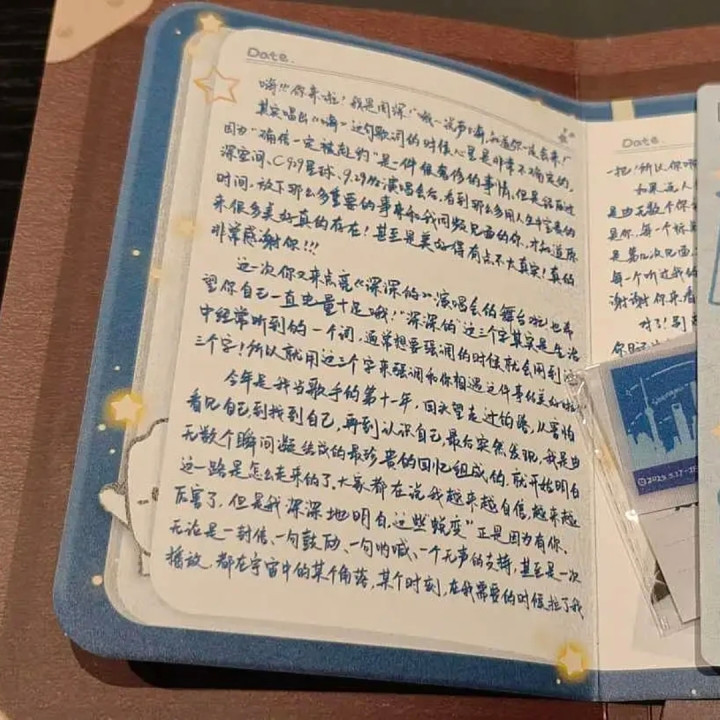 Date.
嗨!!你来啦!我是周深!哦~说声嗨,知道你一定会来!
其实唱出《嗨》这句歌词的时候心里是非常不确定的,
因为"确信一定被赴约"是一件很奢侈的事情,但是经历过
深空间、C929星球、9.29Hz演唱会后,看到那么多用人生中宝贵的
时间,放下那么多重要的事来和我同频见面的你,才知道原
来很多美好真的存在!甚至是美好得有点不大真实!真的
非常感谢你!!!
这一次你又来点亮《深深的》演唱会的舞台啦也希
望你自己一直电量十足哦!"深深的"这三个字其实是生活
中经常听到的一个词,通常想要强调的时候就会用到这
三个字!所以就用这三个字来强调和你相遇这件事的美好啦
今年是我当歌手的第十年,回头望走过的路,从害怕
看见自己到找到自己,再到认识自己,最后突然发现,我是由
无数个瞬间凝结成的最珍贵的回忆组成的,就开始明白
这一路是怎么走来的了。大家都在说我越来越自信,越来越
厉害了,但是我深深地明白,这些"蜕变"正是因为有你、
无论是一封信、一句鼓励、一句呐喊、一个无声的支持,甚至是一次
播放,都在宇宙中的某个角落,某个时刻,在我需要的时候拉了我
Date.
一把!所以你
如果是人
是由无数个你
是你,每一个
是第几次见面,
每一个听过我的
谢谢你来看
对了!别